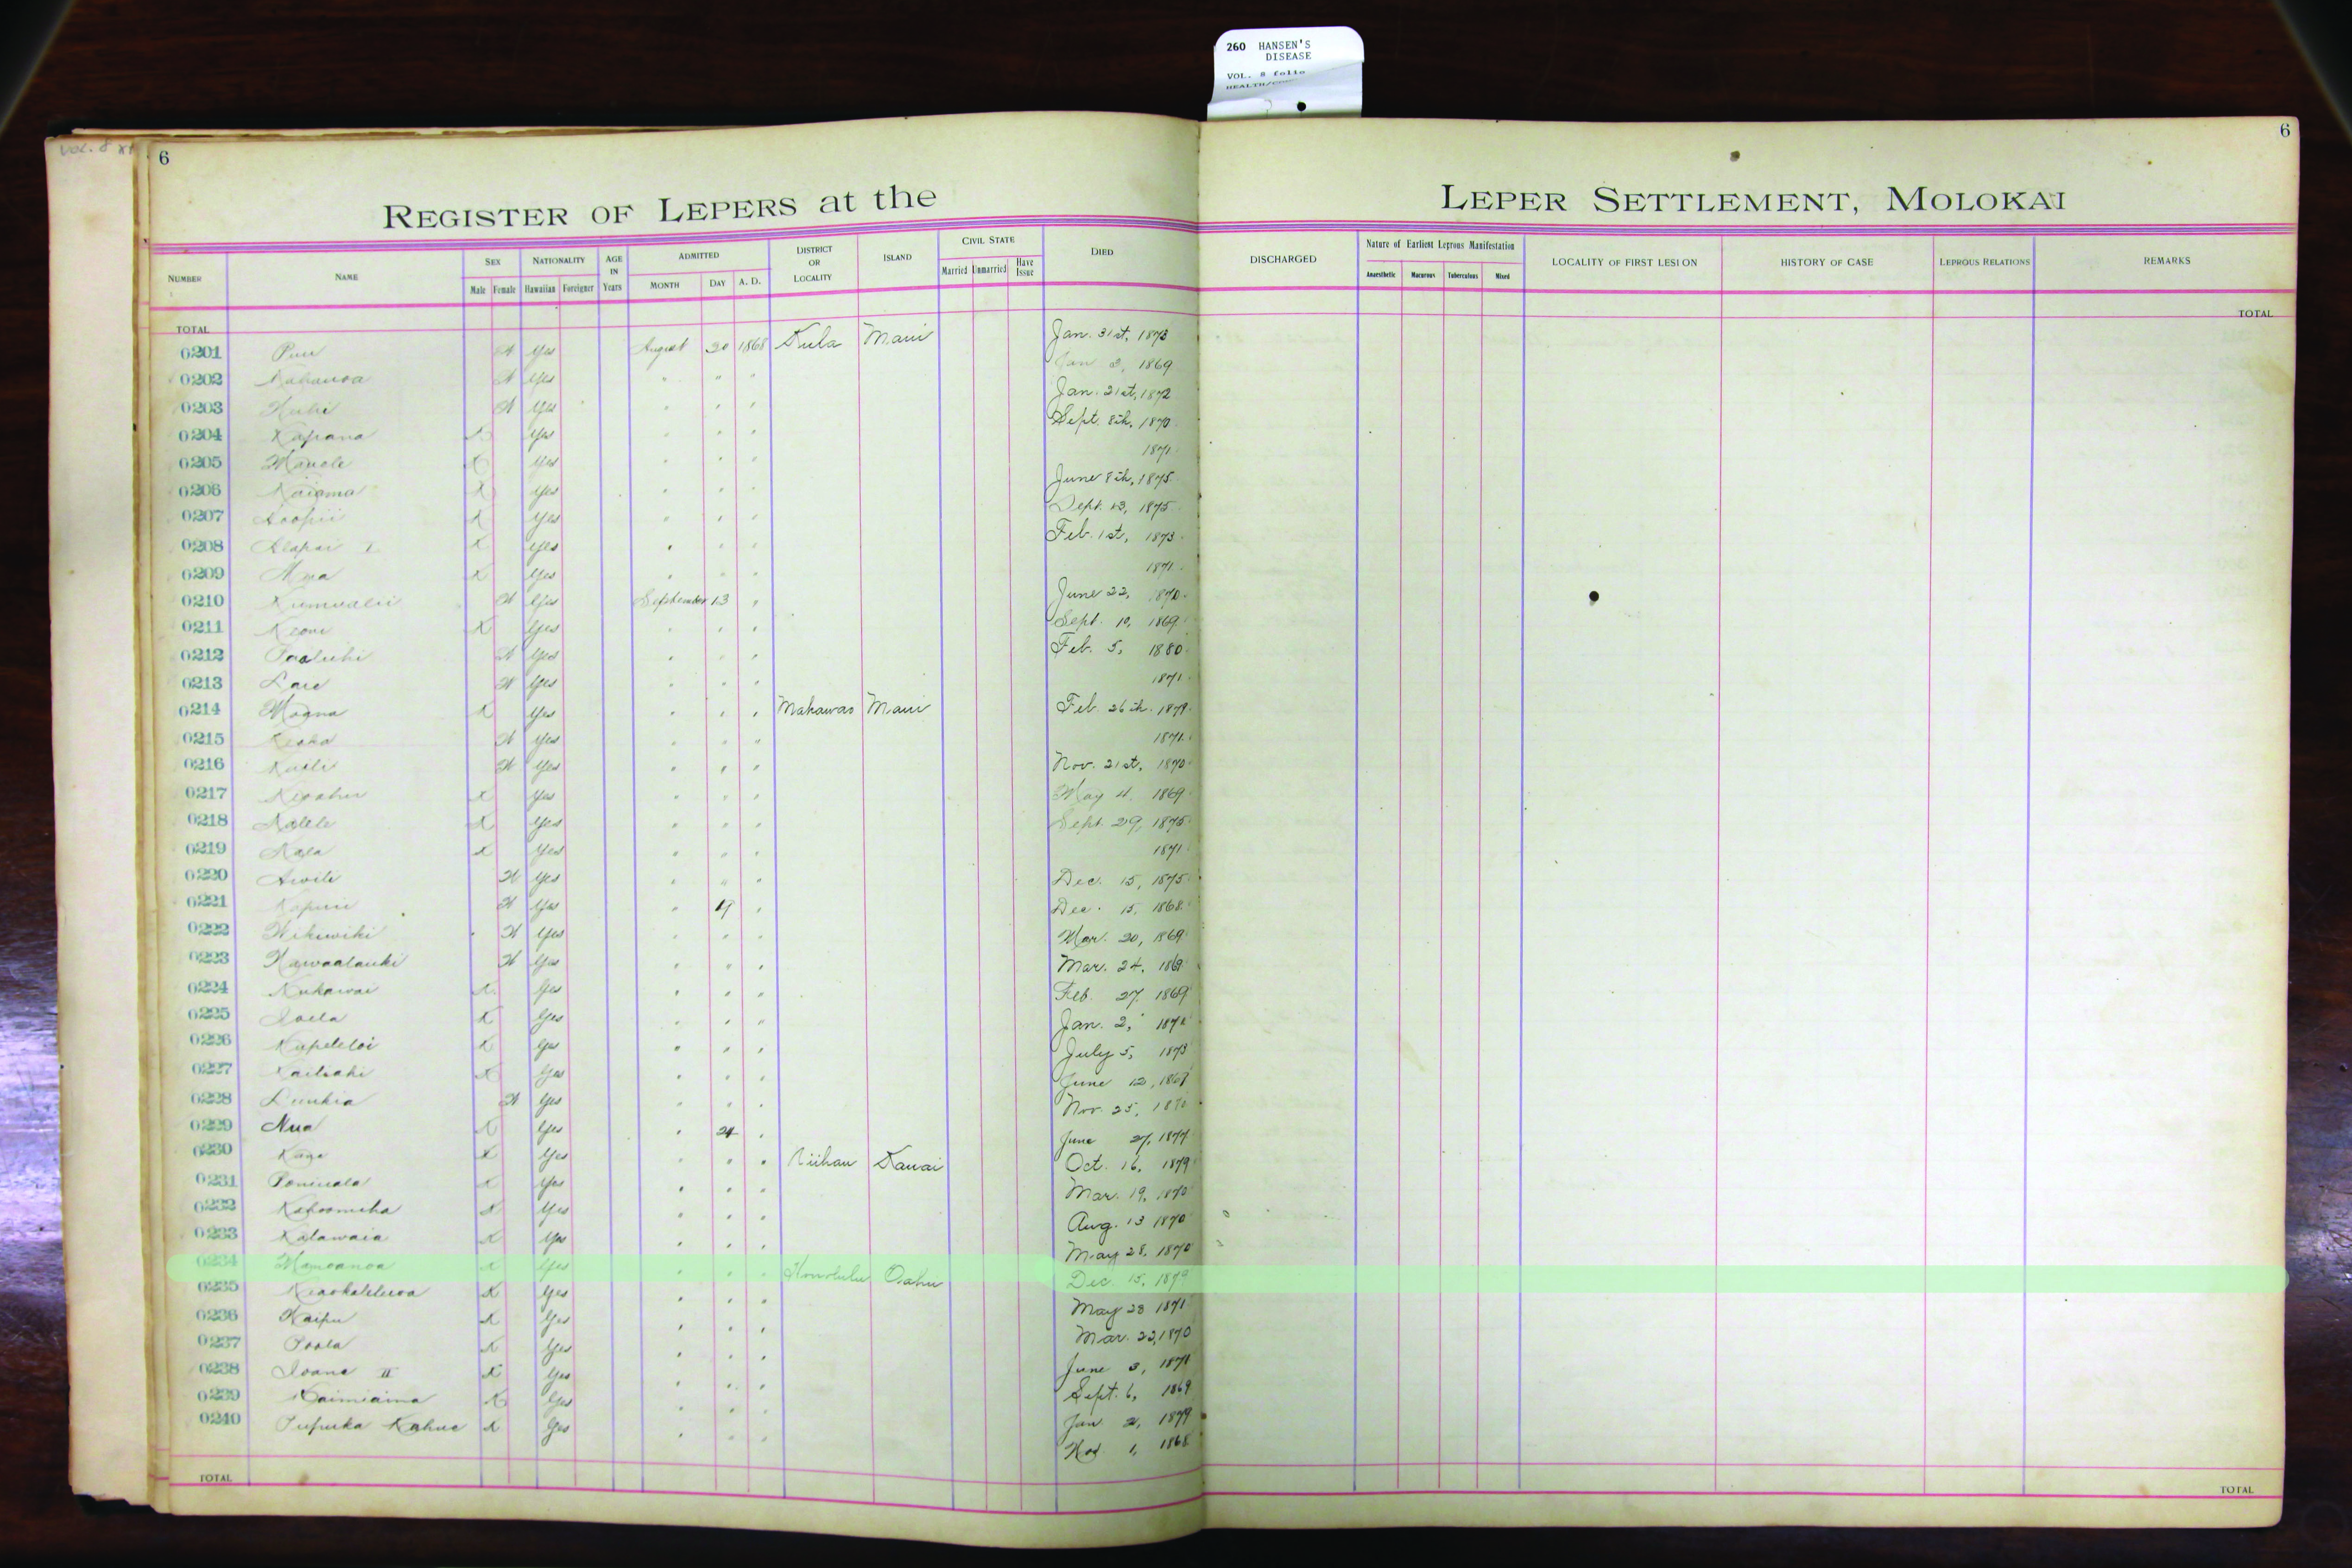 260 HANSEN'S
DISEASE
VOL. 8 folio
6
6
REGISTER OF LEPERS at the LEPER SETTLEMENT, MOLOKAI
NUMBER NAME SEX NATIONALITY AGE IN Years ADMITTED DISTRICT OR LOCALITY ISLAND CIVIL STATE DIED DISCHARGED Nature of Earliest Leprous Manifestation LOCALITY OF FIRST LESION HISTORY OF CASE LEPROUS RELATIONS REMARKS
Male Female Hawaiian Foreigner MONTH DAY A. D. Married Unmarried Have Issue Anaesthetic Macurous Tuberculous Mixed
TOTAL TOTAL
0201 Puu Yes August 20 1868 Kula Maui Jan. 31st, 1873
0202 Yes " " " Jan 2, 1869
0203 Yes " " " Jan. 21st, 1872
0204 Kapana Yes " " " Sept. 8th, 1870
0205 Manele Yes " " " 1871
0206 Naiama Yes " " " June 8th, 1875
0207 Koopii Yes " " " Sept. 13, 1875
0208 Alapai I Yes " " " Feb. 1st, 1873
0209 Yes " " " 1871
0210 Kumualii Yes September 13 " June 22, 1870
0211 Keoni Yes " " " Sept. 10, 1869
0212 Paaluhi Yes " " " Feb. 5, 1880
0213 Yes " " " 1871
0214 Moana Yes " " " Makawao Maui Feb. 26th. 1879
0215 Yes " " " 1871
0216 Kaili Yes " " " Nov. 21st, 1870
0217 Yes " " " May 4, 1869
0218 Yes " " " Sept. 29, 1875
0219 Yes " " " 1871
0220 Awili Yes " " " Dec. 15, 1875
0221 Kapuu Yes " 19 " Dec. 15, 1868
0222 Wikiwiki Yes " " " Mar. 20, 1869
0223 Kawaalauki Yes " " " Mar. 24, 1869
0224 Nukawai Yes " " " Feb. 27, 1869
0225 Ioela Yes " " " Jan. 2,
0226 Kupeleloi Yes " " " July 5, 1873
0227 Kailiahi Yes " " " June 12, 1869
0228 Yes " " " Nov. 25, 1870
0229 Nua Yes " 24 " June 27, 1877
0230 Yes " " " Niihau Kauai Oct. 16, 1879
0231 Yes " " " Mar. 19, 1870
0232 Kahoomiha Yes " " " Aug. 13 1870
0233 Kalawaia Yes " " " May 28, 1870
0234 Mamoanoa Yes " " " Honolulu Oahu Dec. 15, 1879
0235 Yes " " " May 28 1871
0236 Kaipu Yes " " " Mar. 22, 1870
0237 Yes " " " June 3,
0238 Ioane II Yes " " " Sept. 6, 1869
0239 Kaimiaina Yes " " " Jan 2, 1879
0240 Pupuka Kahue Yes " " " Nov 1, 1868
TOTAL TOTAL